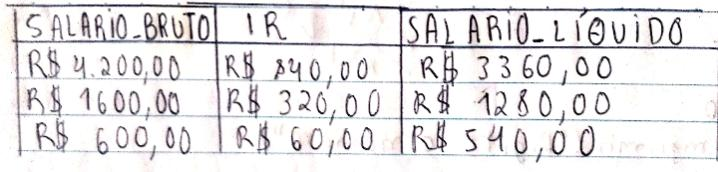 SALARIO_BRUTO IR SALARIO_LÍQUIDO
R$ 4.200,00 R$ 840,00 R$ 3360,00
R$ 1600,00 R$ 320,00 R$ 1280,00
R$ 600,00 R$ 60,00 R$ 540,00